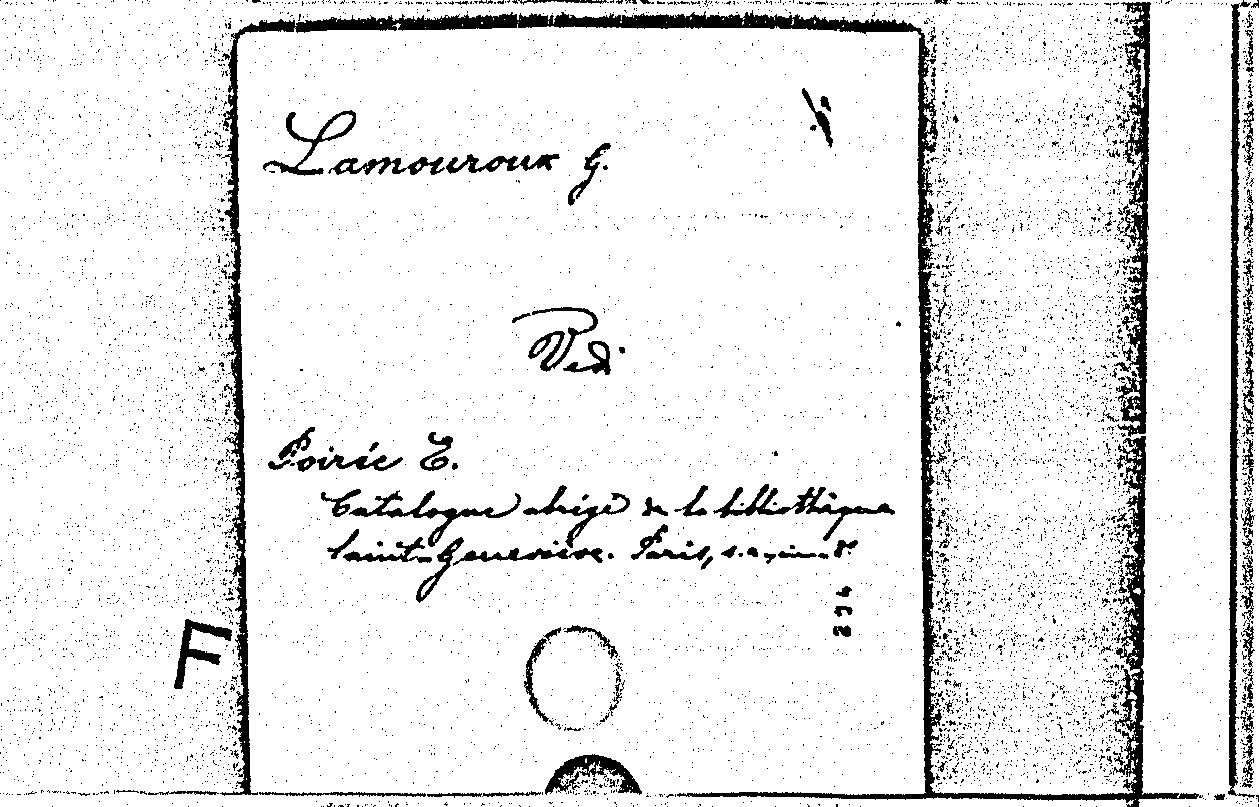 Lamouroux G.
Vedi
Poirée E.
Catalogue abrégé de la bibliothèque
Saint-Geneviève. Paris, s.a., in-8°
234
F